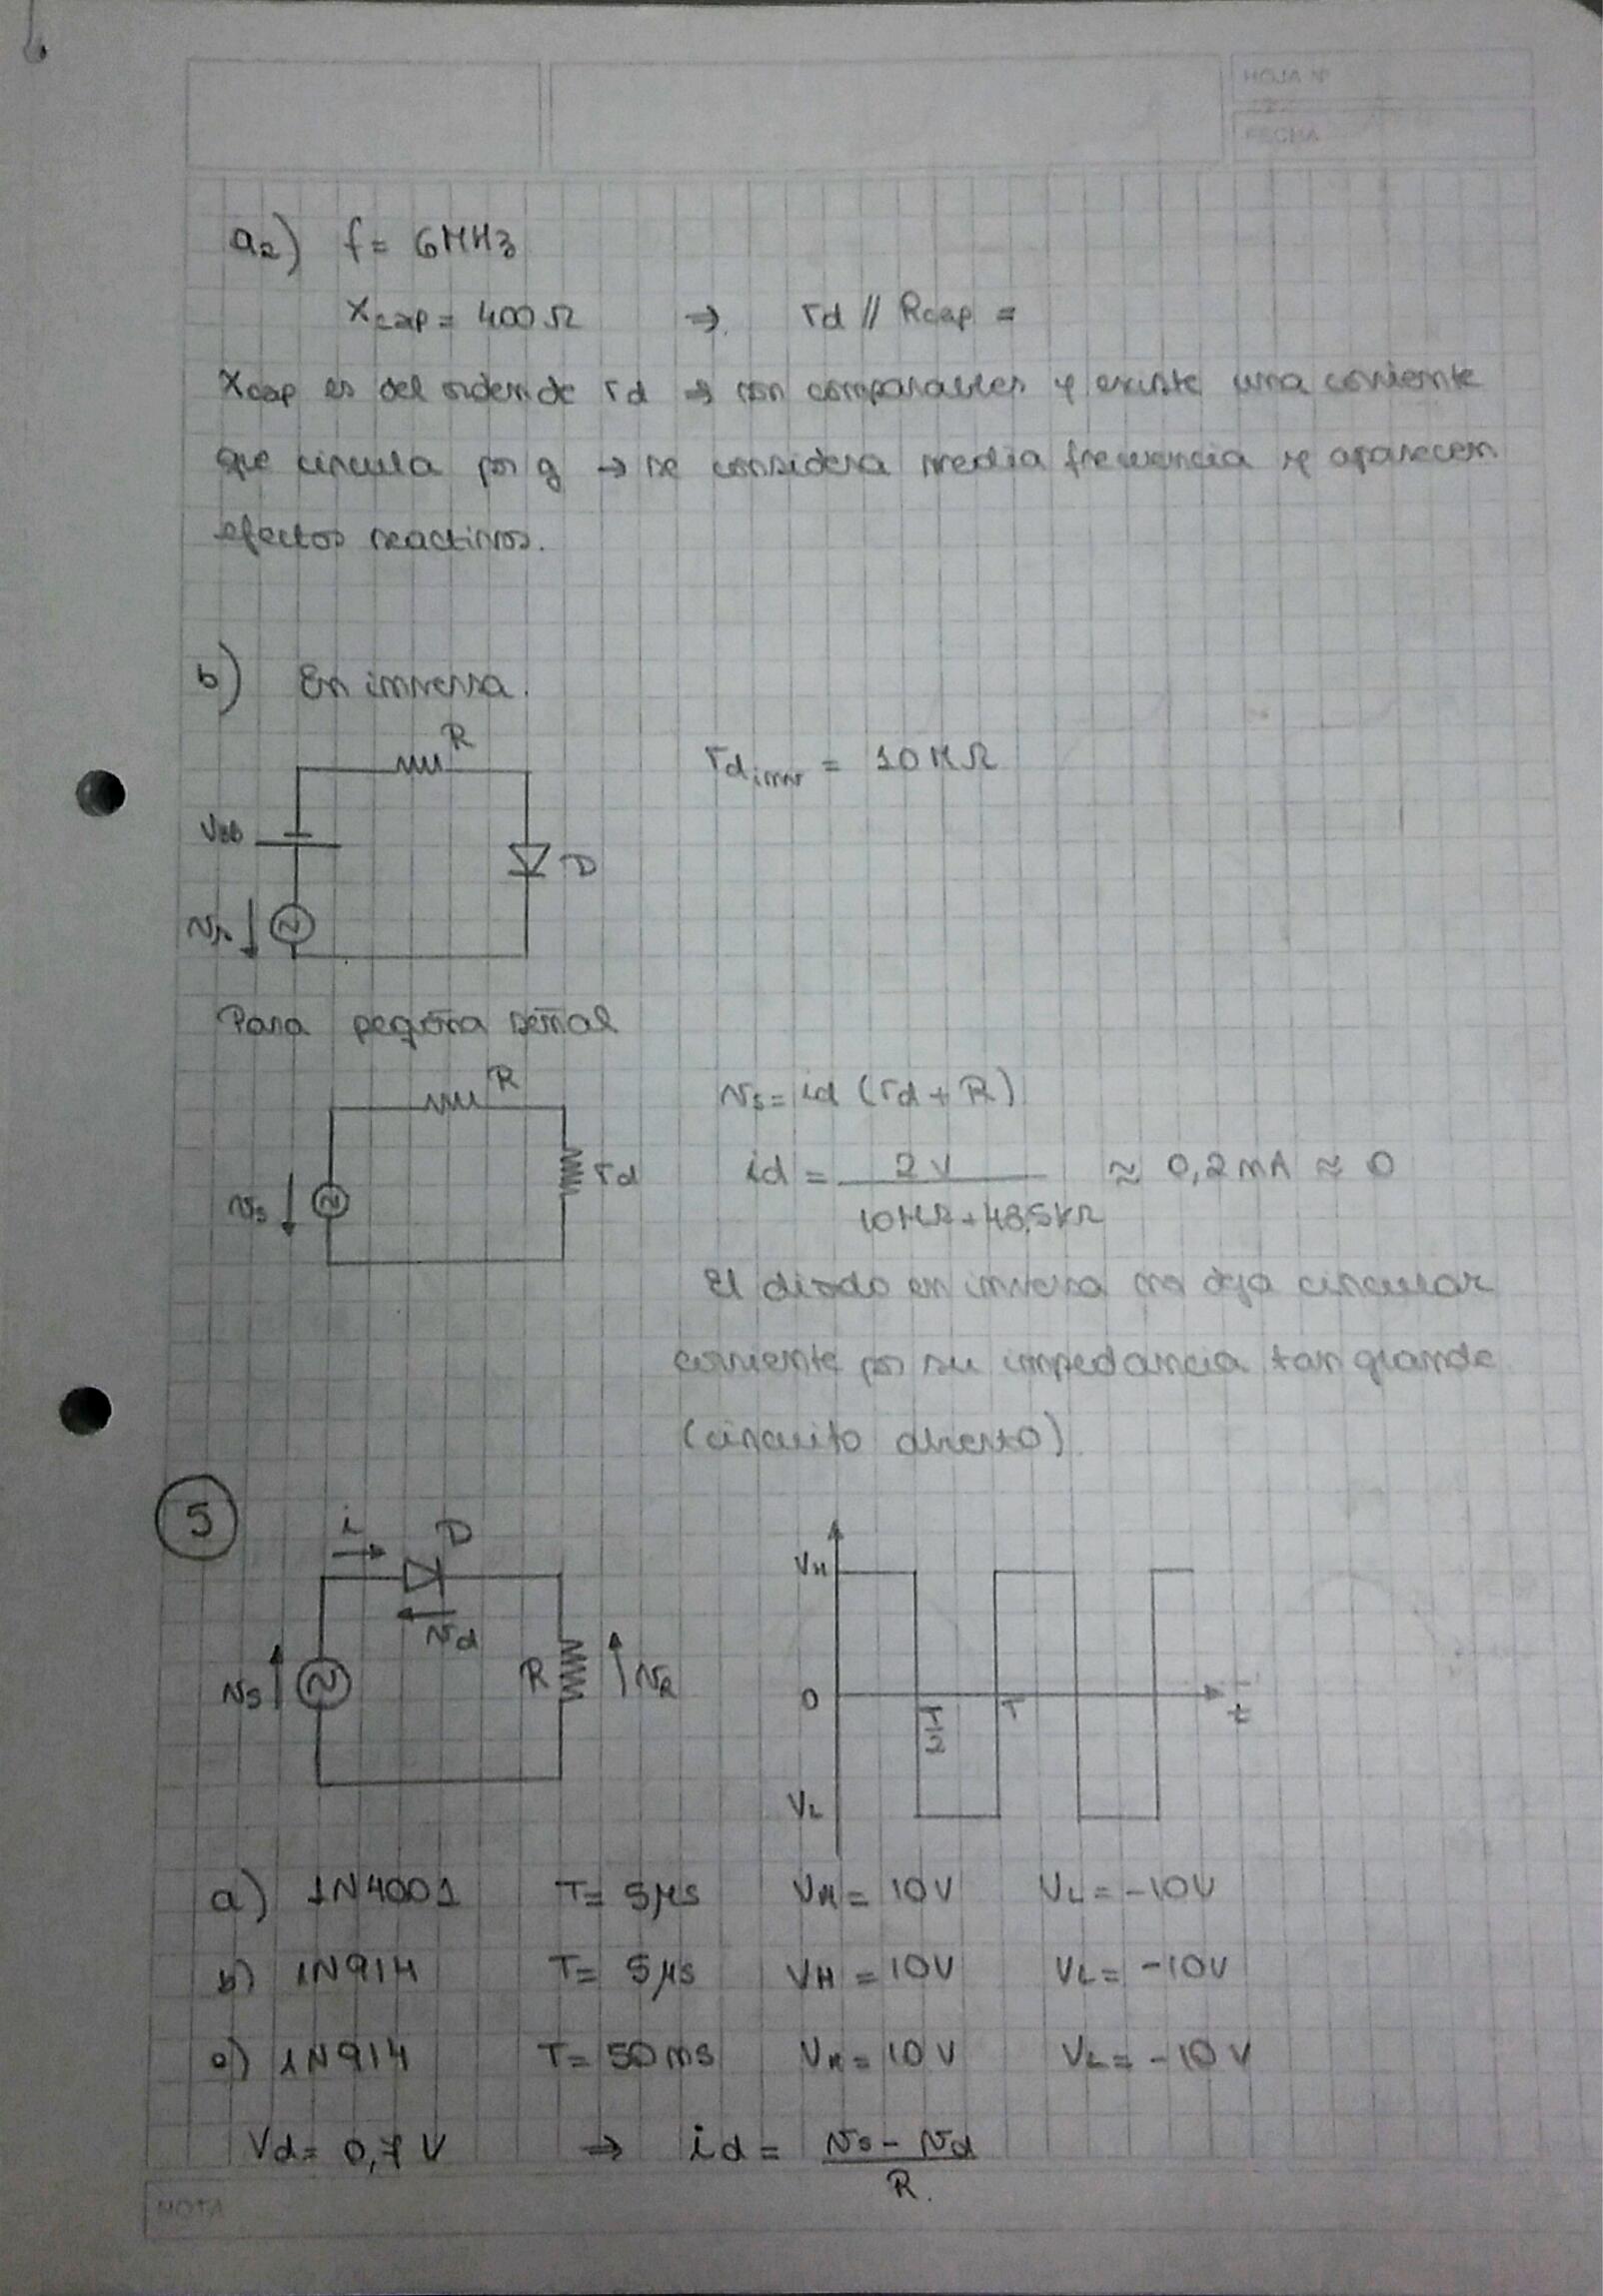 HOJA Nº
FECHA
a2) f = 6MHz
Xcap = 400Ω ⇒ rd // Rcap =
Xcap es del orden de rd → son comparables y existe una corriente
que circula por g → se considera media frecuencia y aparecen
efectos reactivos.
b) En inversa.
R
rd inv = 10MΩ
VBB
D
vs
Para pequeña señal
R
vs = id (rd + R)
vs
rd
id = 2V / 10MΩ+48,5KΩ ≈ 0,2mA ≈ 0
El diodo en inversa no deja circular
corriente por su impedancia tan grande
(circuito abierto)
5
i
D
vd
vs
R
vR
VH
0
VL
T/2
T
t
a) 1N4001 T= 5μs VH = 10V VL = -10V
b) 1N914 T= 5μs VH = 10V VL = -10V
c) 1N914 T= 50ms VH = 10V VL = -10V
Vd = 0,7V ⇒ id = vs - vd / R.
NOTA